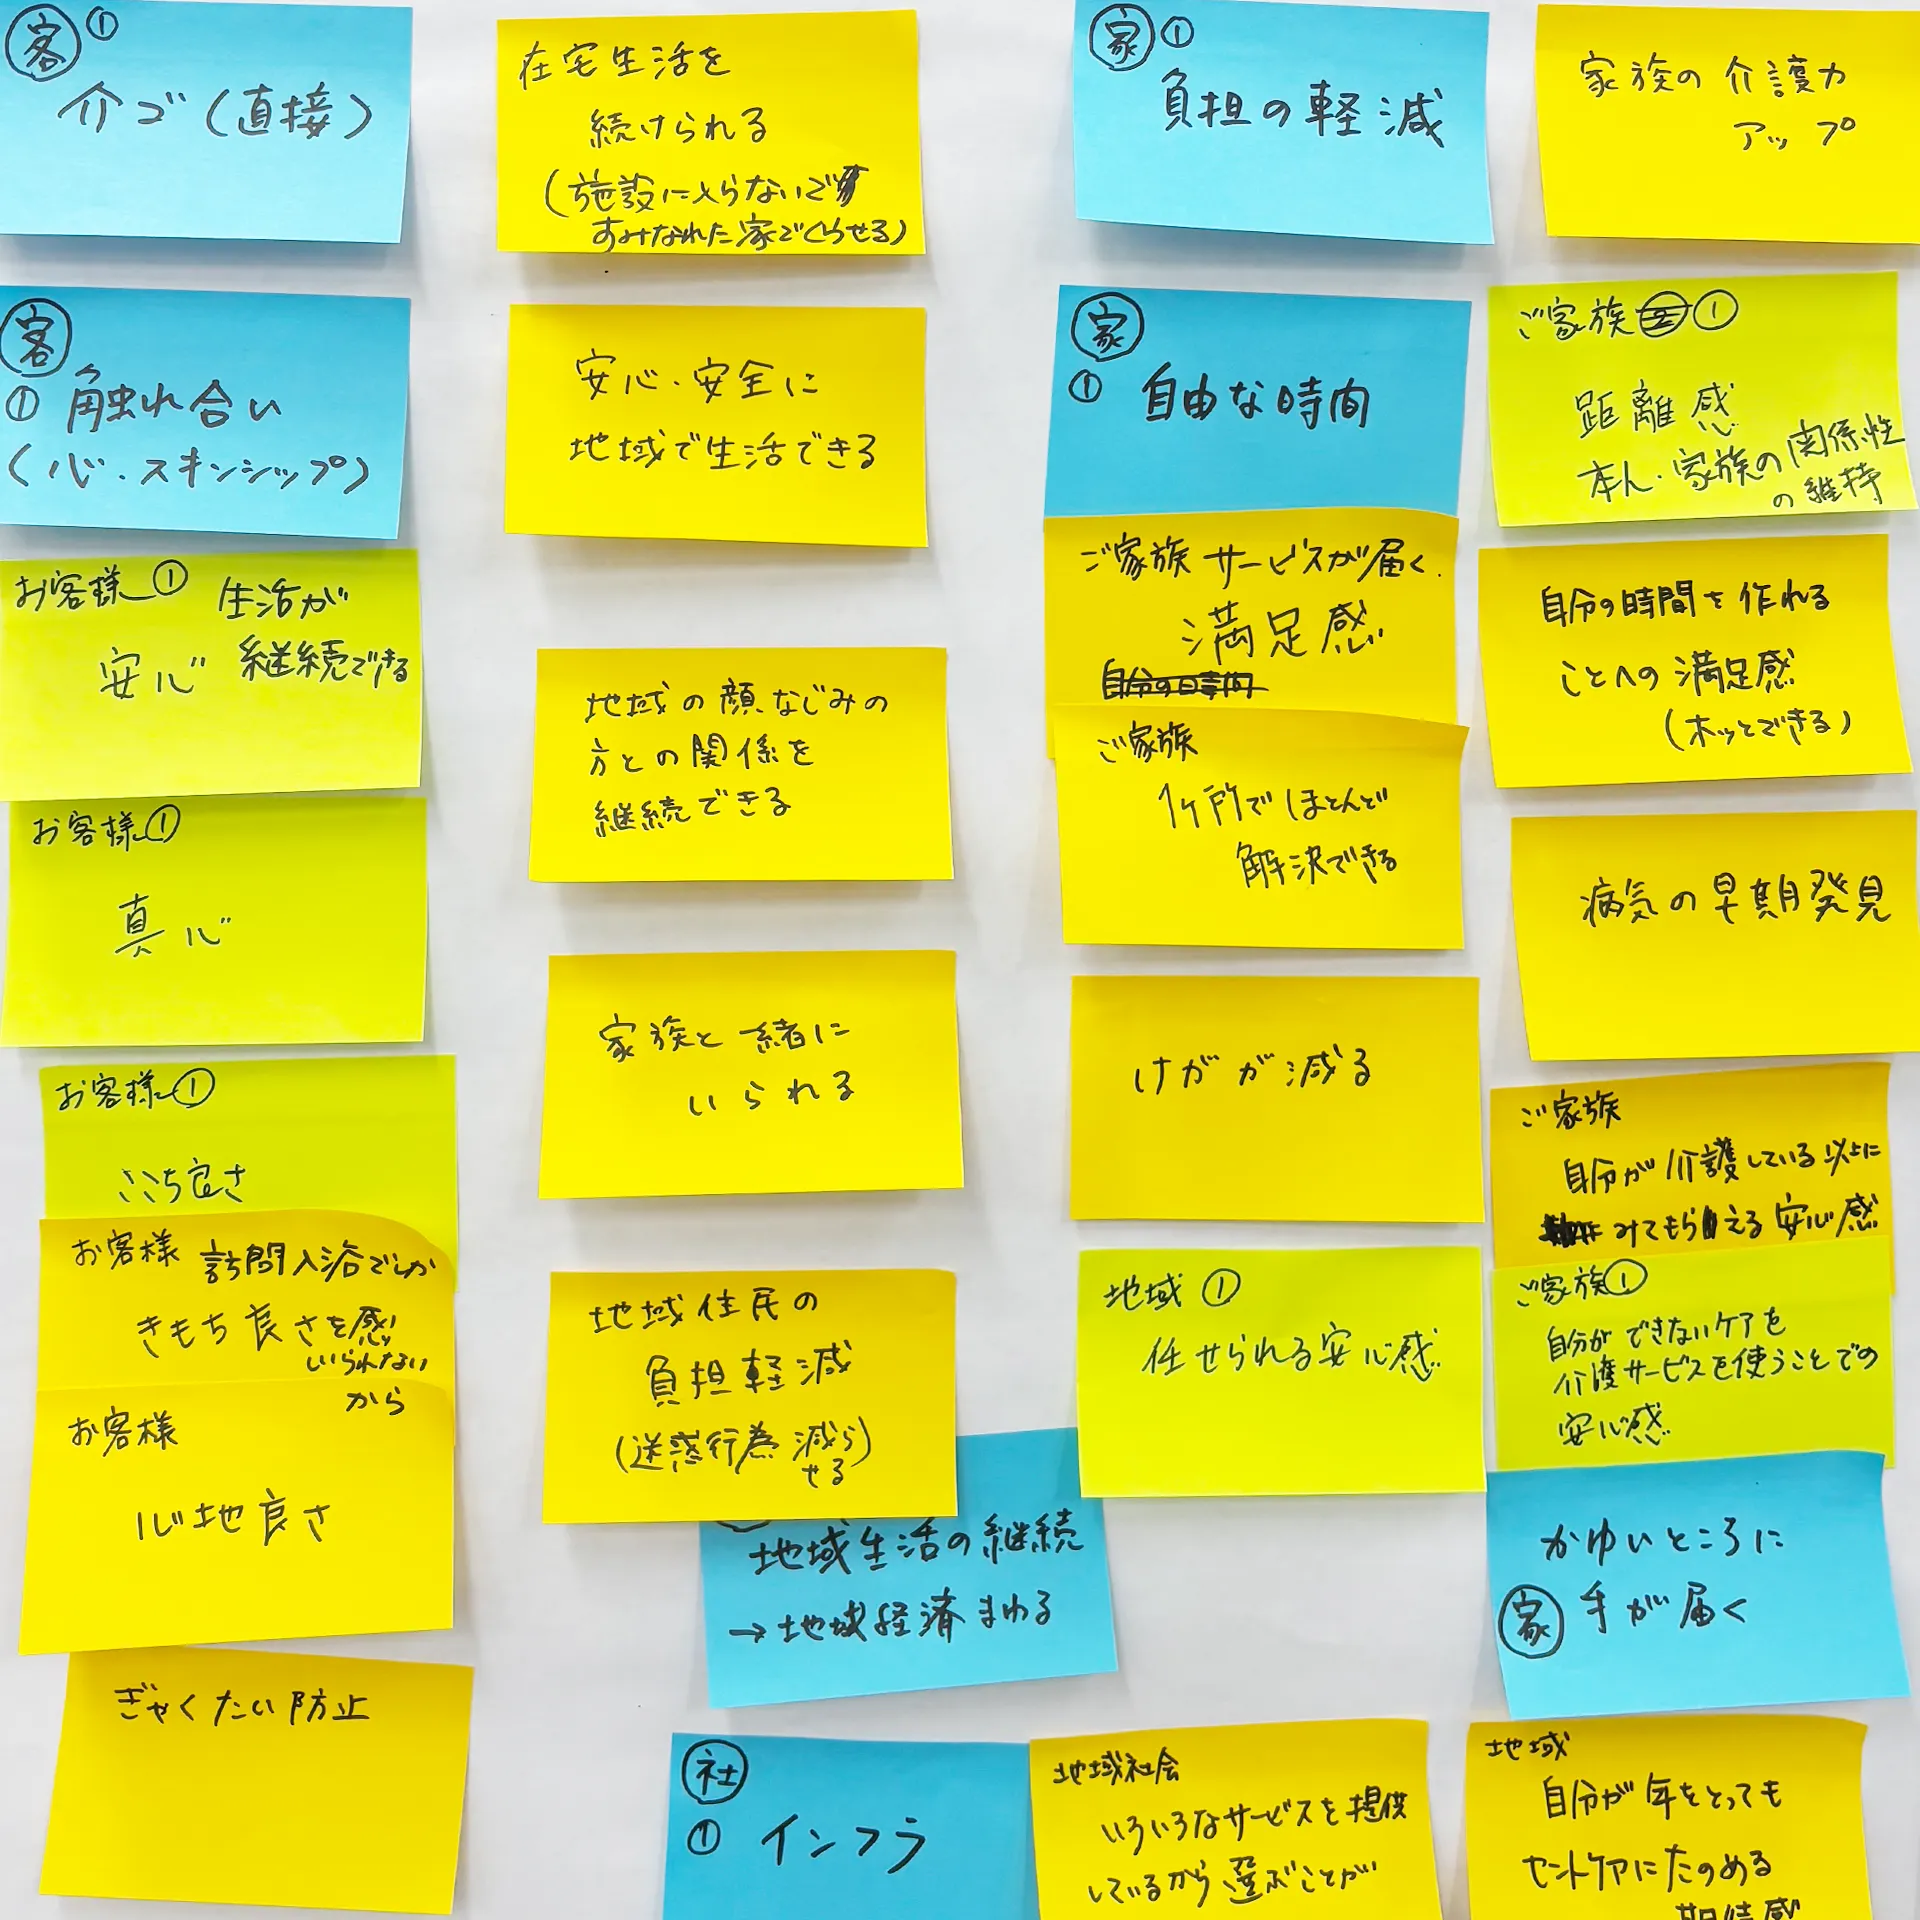 客 ①
介ゴ(直接)
客
① 触れ合い
(心・スキンシップ)
お客様① 生活が
安心 継続できる
お客様①
真心
お客様①
ここち良さ
お客様 訪問入浴でしか
きもち良さを感じ
いられない
から
お客様
心地良さ
ぎゃくたい防止
在宅生活を
続けられる
(施設に入らないで
すみなれた家でくらせる)
安心・安全に
地域で生活できる
地域の顔なじみの
方との関係を
継続できる
家族と一緒に
いられる
地域住民の
負担軽減
(迷惑行為 減ら
せる)
地域生活の継続
→地域経済まわる
社
① インフラ
家 ①
負担の軽減
家
① 自由な時間
ご家族 サービスが届く
満足感
自分の時間
ご家族
1ケ所でほとんど
解決できる
けがが減る
地域 ①
任せられる安心感
地域社会
いろいろなサービスを提供
しているから選ぶことが
家族の介護力
アップ
ご家族 ②①
距離感
本人・家族の関係性
の維持
自分の時間を作れる
ことへの満足感
(ホッとできる)
病気の早期発見
ご家族
自分が介護している以上に
みてもらえる安心感
ご家族①
自分ができないケアを
介護サービスを使うことでの
安心感
かゆいところに
家 手が届く
地域
自分が年をとっても
セントケアにたのめる
期待感